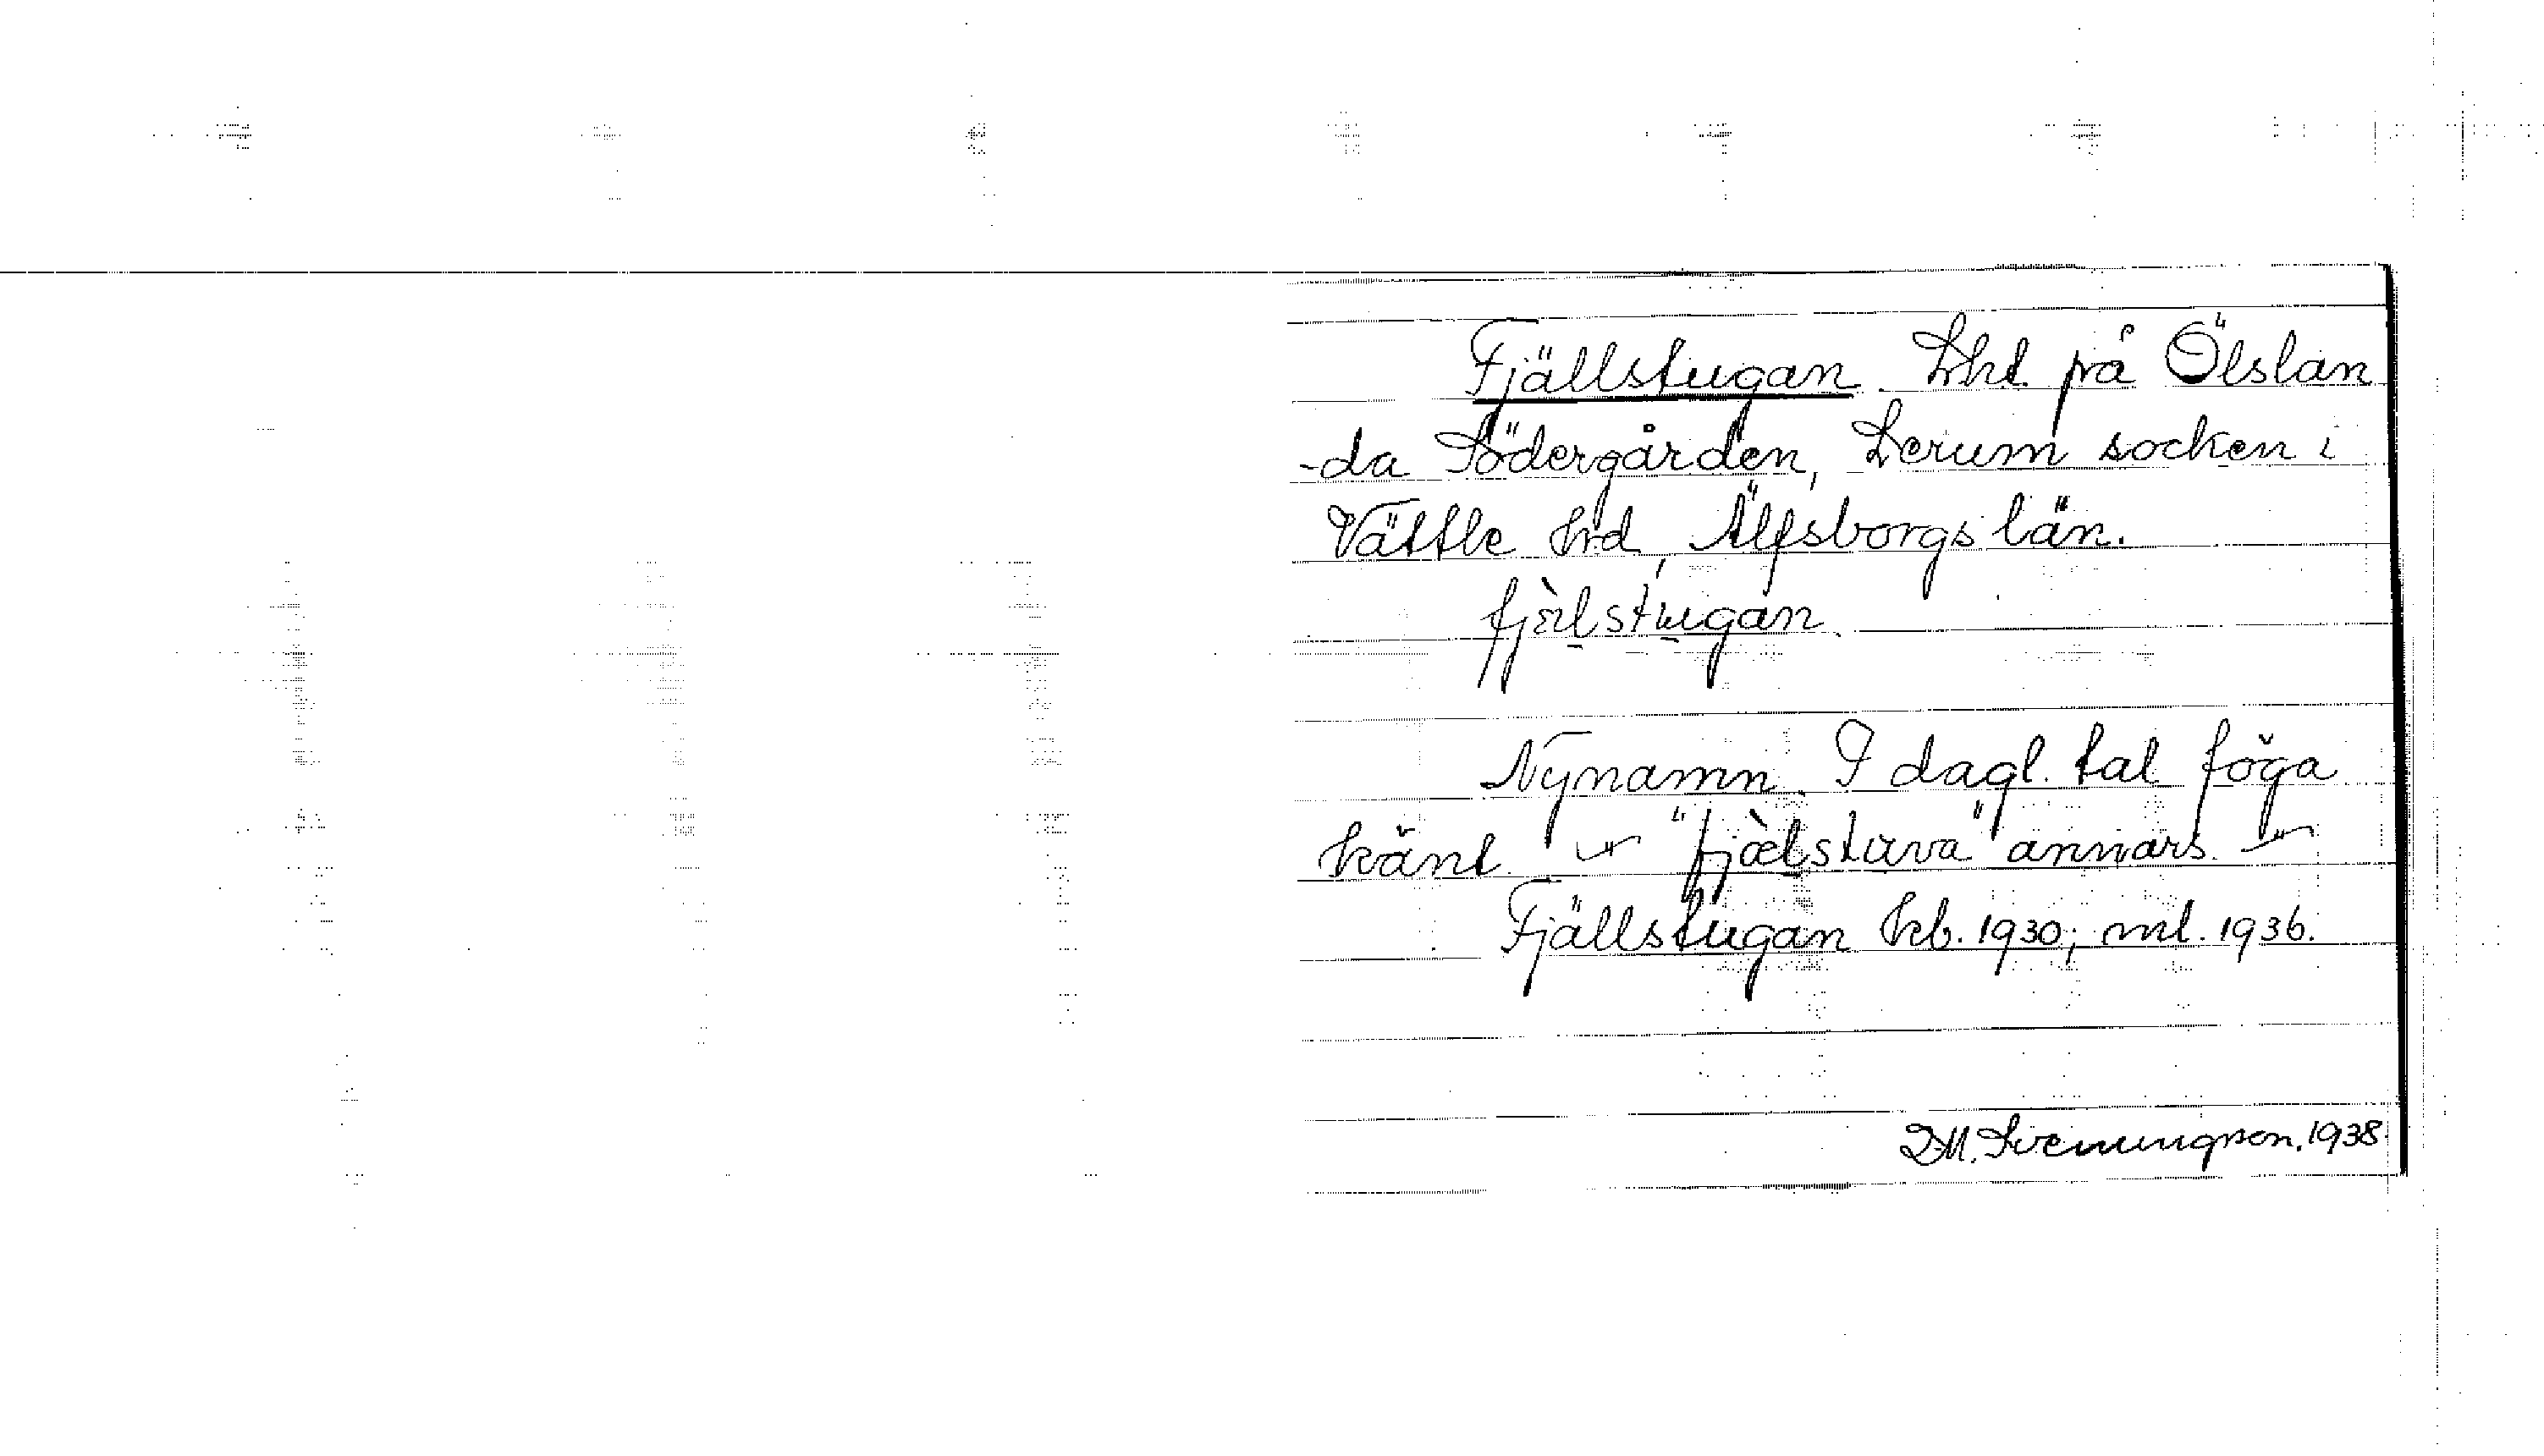 Fjällstugan. Lht. på Ölslan
-da Södergården, Lerum socken i
Vättle hrd, Älfsborgs län.
fjæ̀lstugan.
Nynamn. I dagl. tal föga
känt. "fjæ̀lstuva" annars.
Fjällstugan kb. 1930; ml. 1936.
D.M. Svenungsson. 1938